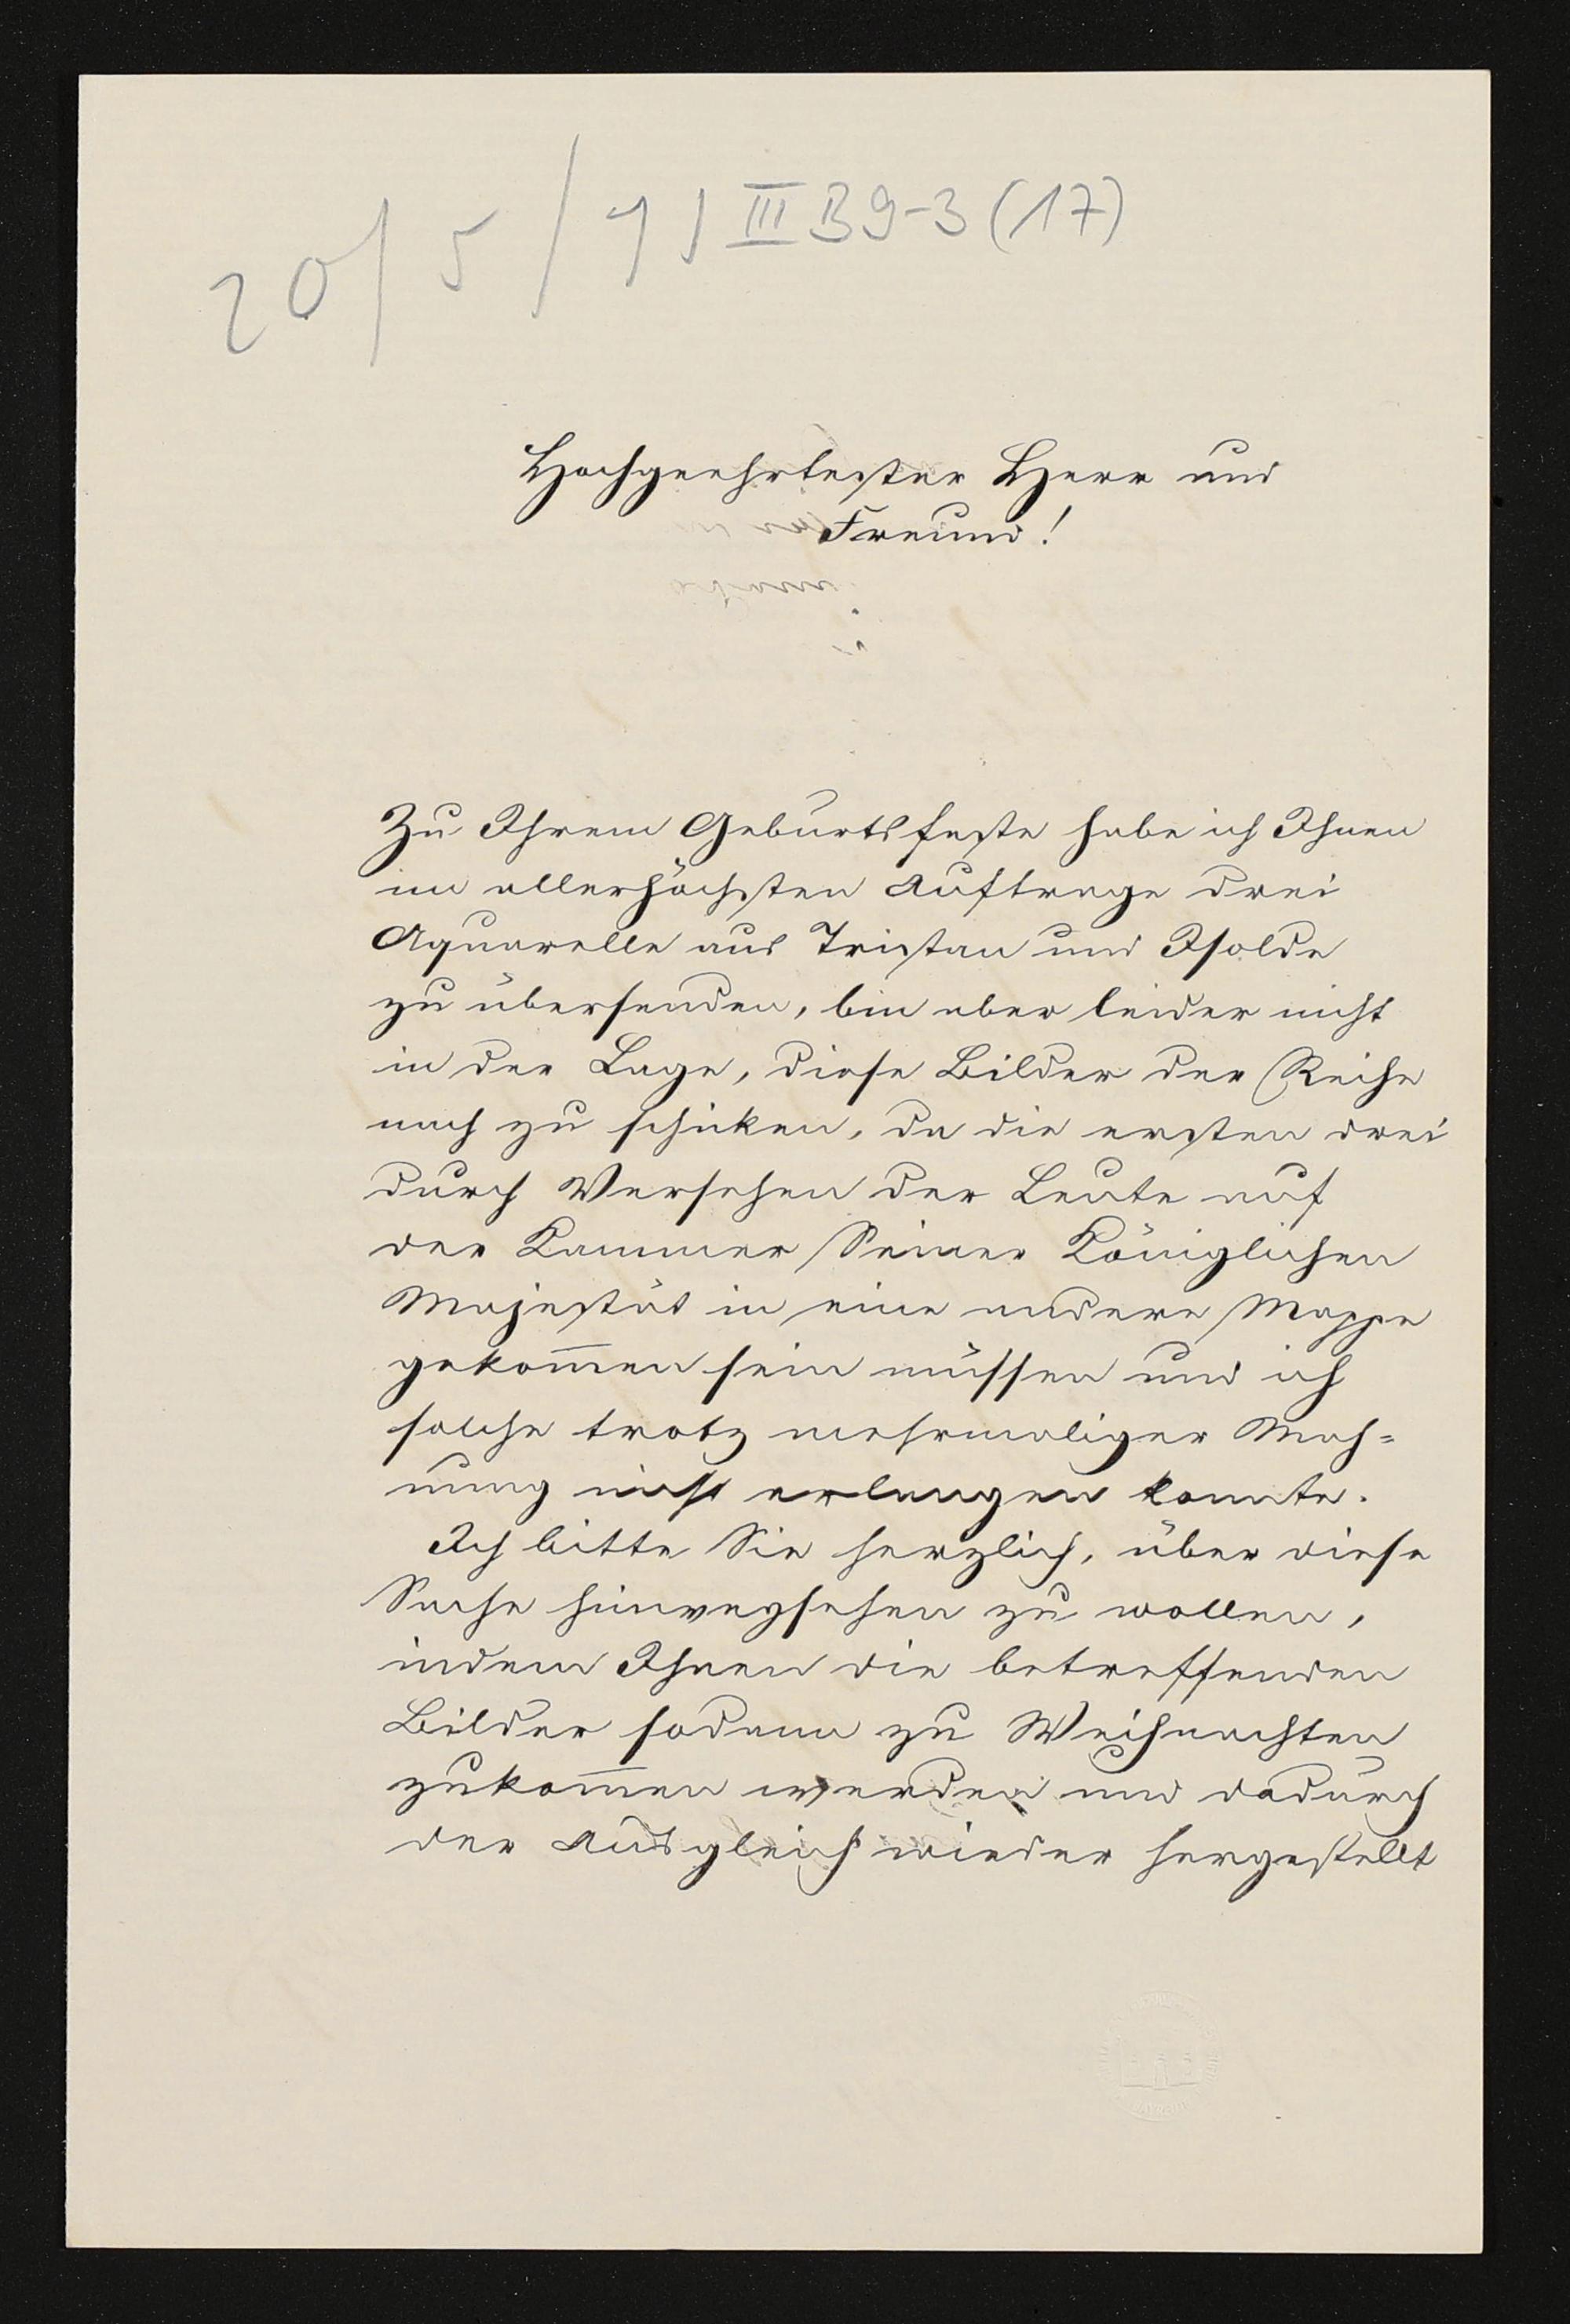 20/5/71 III B 9-3 (17)
Hochgeehrtester Herr und
Freund!
Zu Ihrem Geburtsfeste habe ich Ihnen
im allerhöchsten Auftrage drei
Aquarelle aus Tristan und Isolde
zu übersenden, bin aber leider nicht
in der Lage, diese Bilder der Reihe
nach zu schicken, da die ersten drei
durch Versehen der Leute auf
der Kammer Seiner Königlichen
Majestät in eine andere Mappe
gekom̅en sein müssen und ich
solche trotz mehrmaliger Mah=
nung nicht erlangen konnte.
Ich bitte Sie herzlich, über diese
Sache hinwegsehen zu wollen,
indem Ihnen die betreffenden
Bilder sodann zu Weihnachten
zukom̅en werden und dadurch
der Ausgleich wieder hergestellt